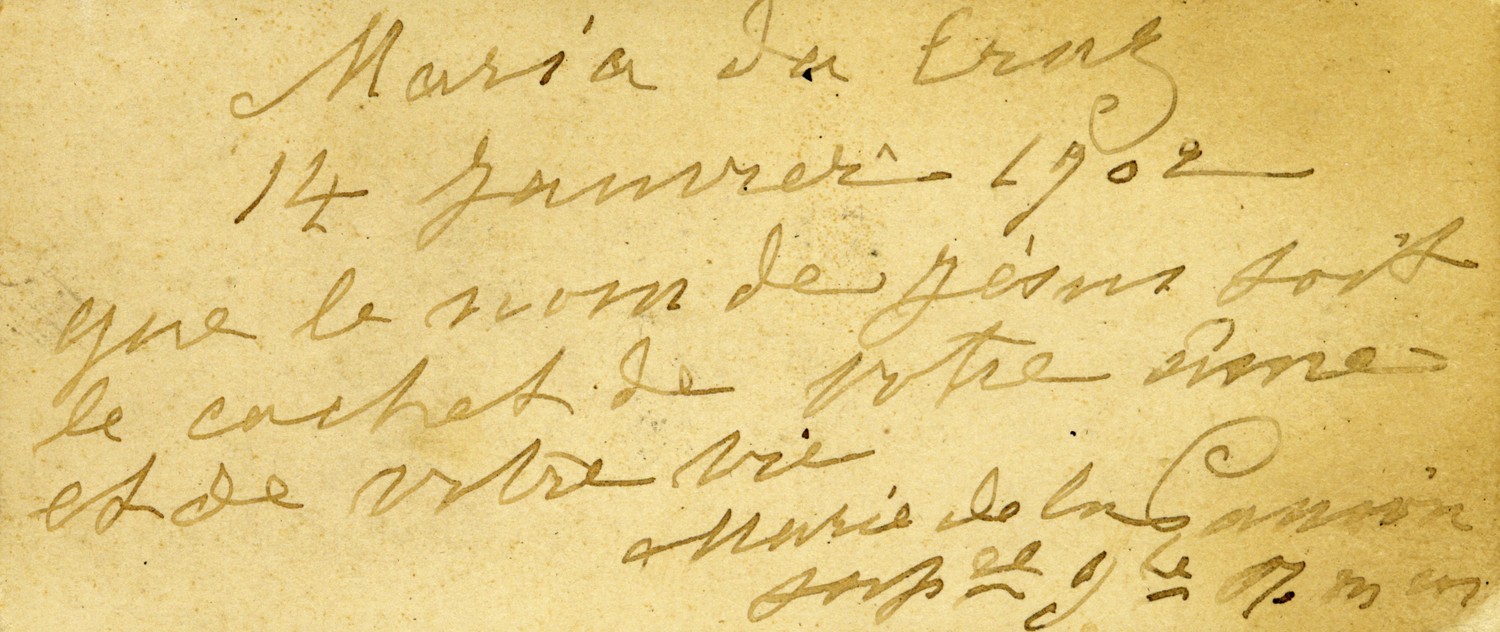 Maria da Cruz
14 Janvier 1902
que le nom de Jésus soit
le cachet de votre âme
et de votre vie
Marie de la Passion
sup re g le f. m m